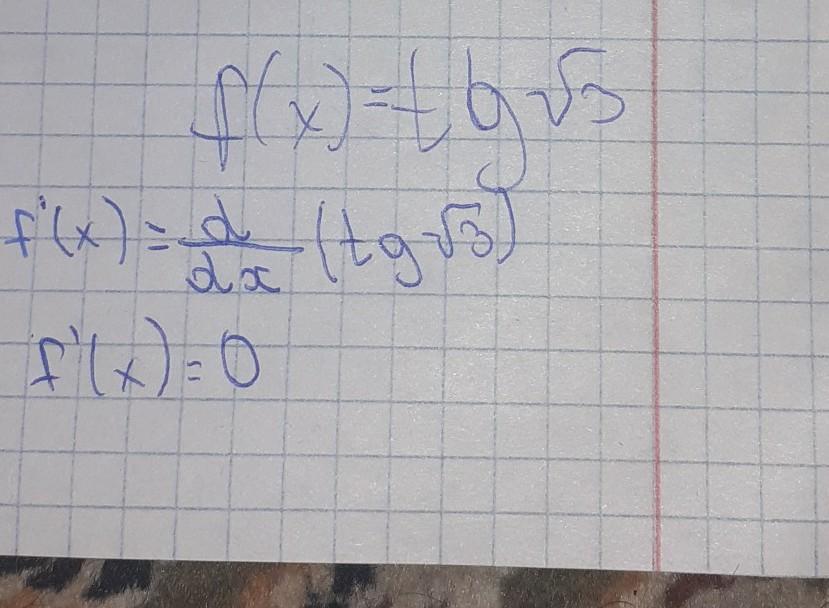 f(x)=tg√3
f'(x)=d/dx(tg√3)
f'(x)=0